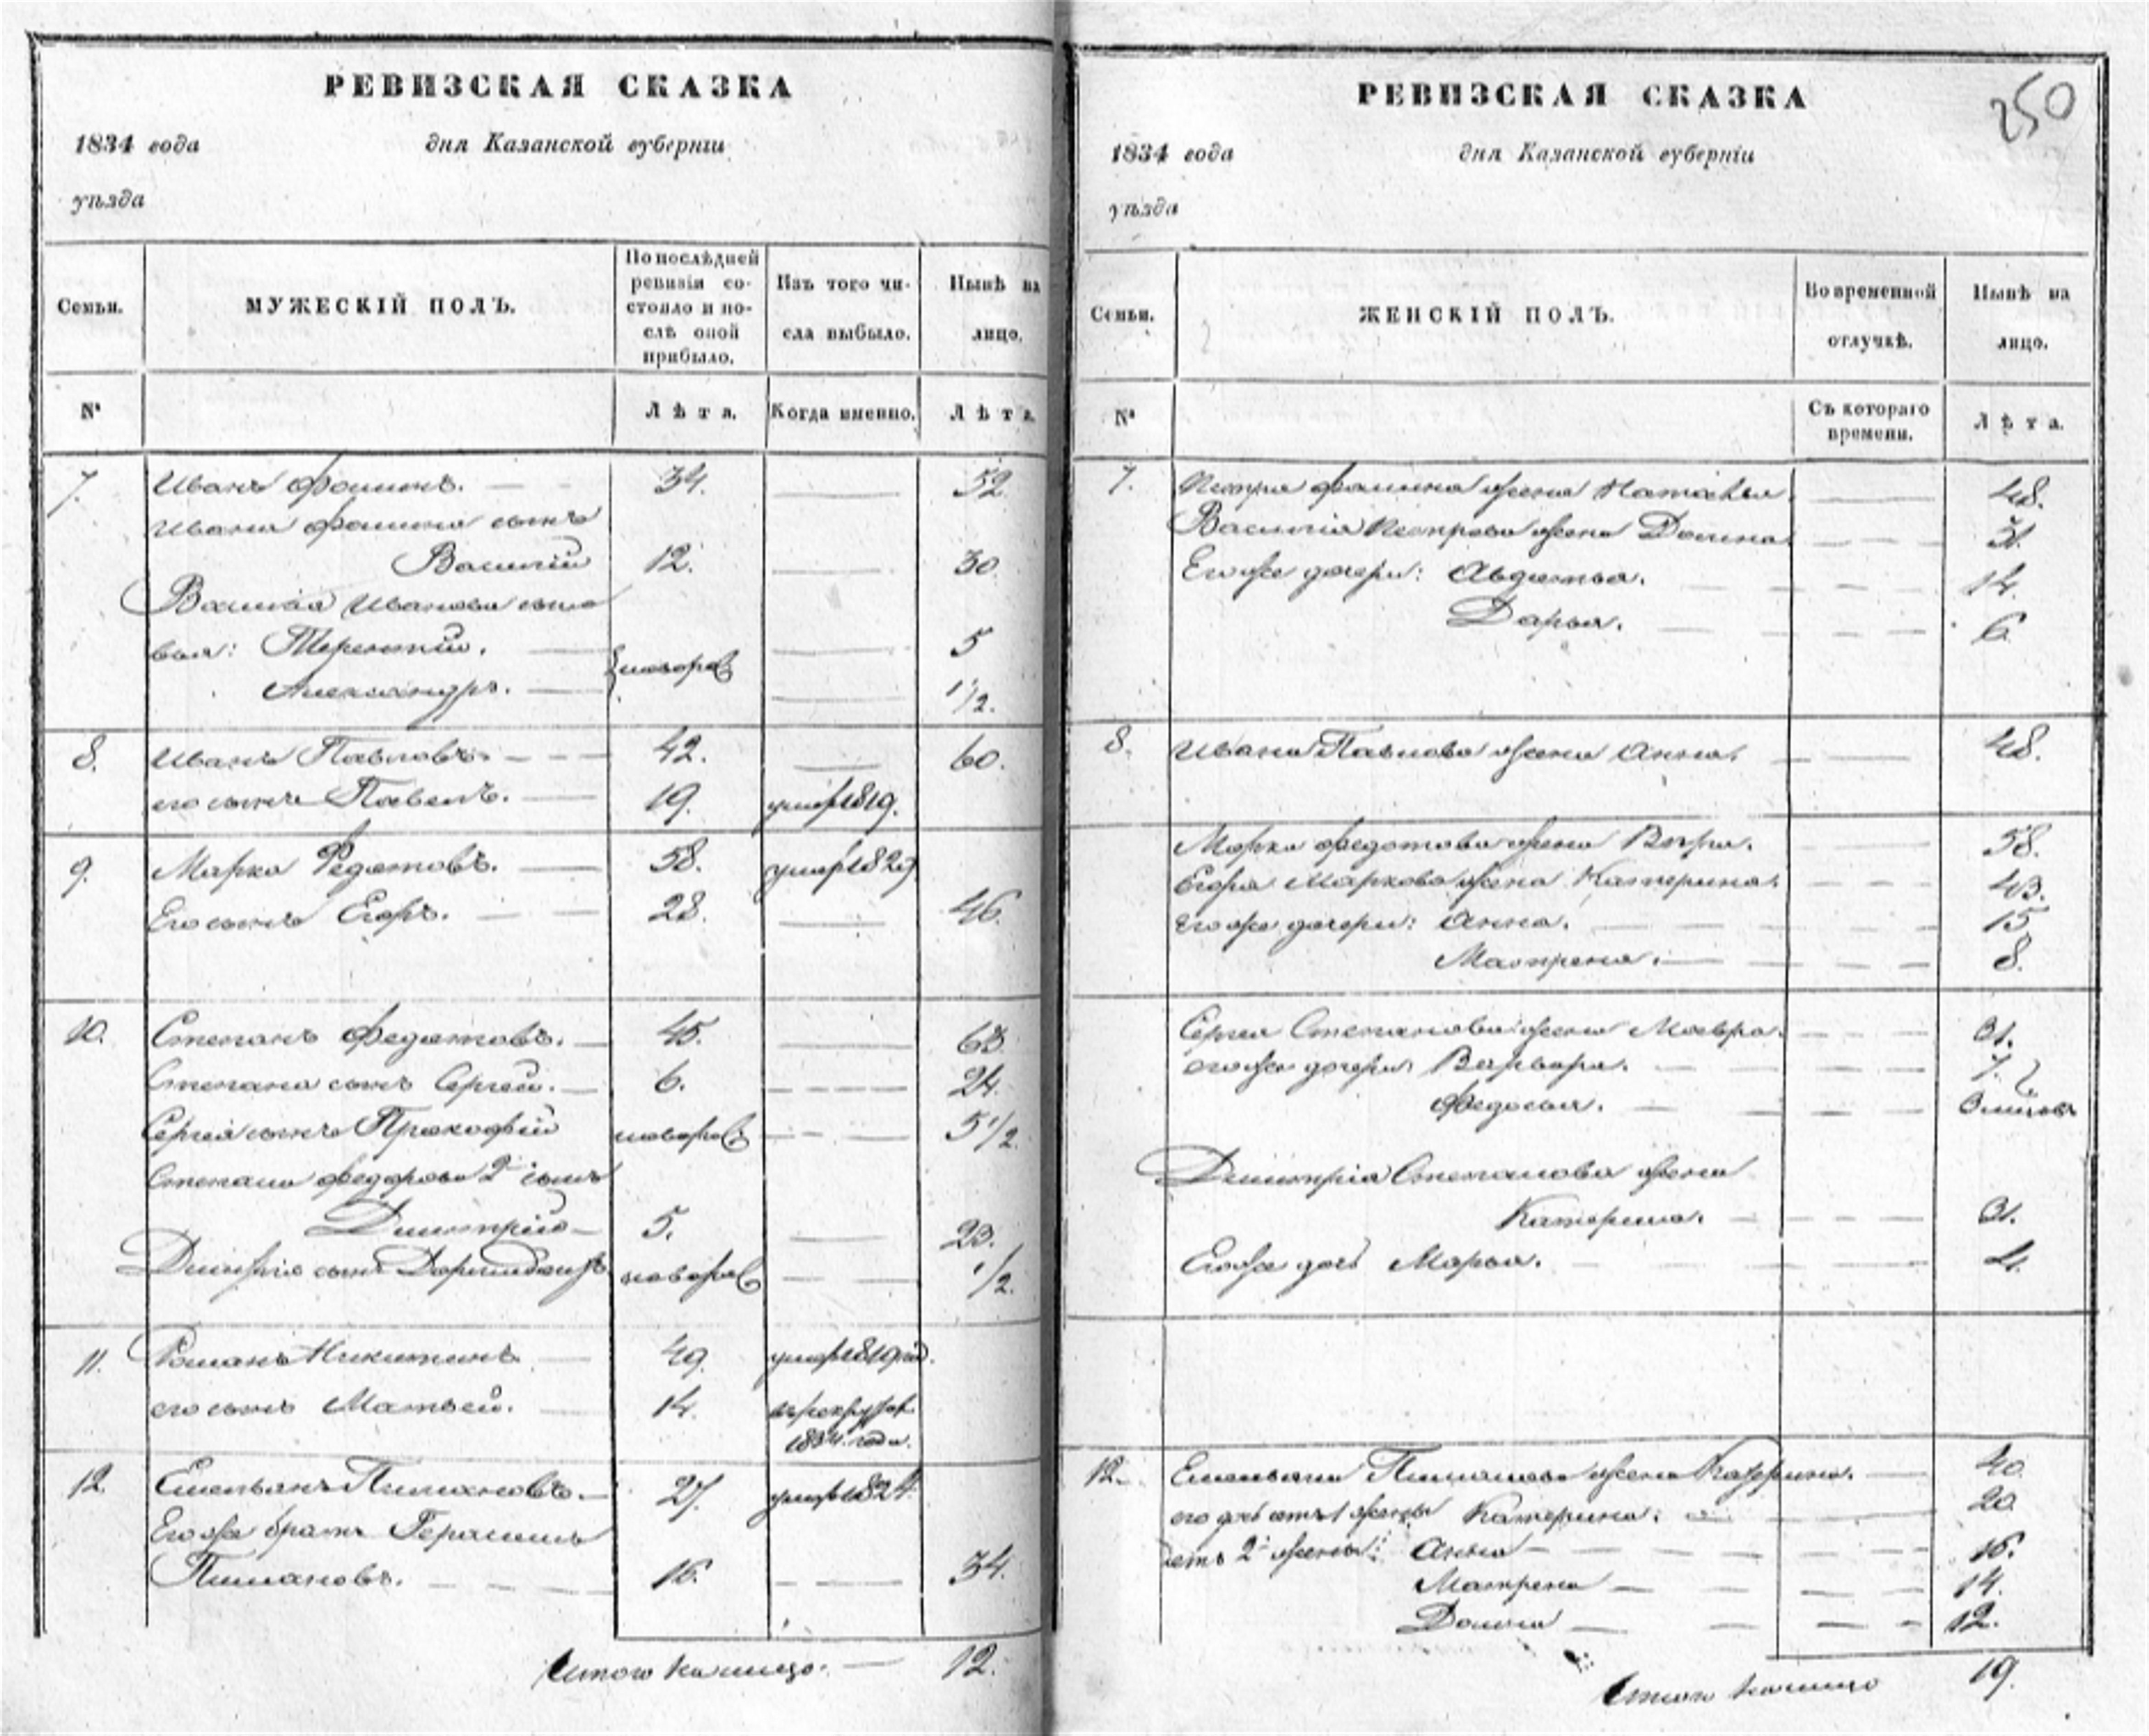 РЕВИЗСКАЯ СКАЗКА
1834 года дня Казанской губерніи
уѣзда
Семьи. МУЖЕСКІЙ ПОЛЪ. По послѣдней ревизіи состояло и послѣ оной прибыло. Изъ того числа выбыло. Нынѣ на лицо.
№ Лѣта. Когда именно. Лѣта.
7. Иванъ Фоминъ. 34. 52
Ивана Фомина сынъ
Василий 12. 30
Василія Иванова сыно
вья: Терентий. новорож 5
Александръ. 1½.
8. Иванъ Павловъ. 42. 60.
его сынъ Павелъ. 19. умер 1819.
9. Марко Федотовъ. 58. умер 1829
Его сынъ Егоръ. 28. 46.
10. Степанъ Федотовъ. 45. 63.
Степана сынъ Сергей. 6. 24.
Сергея сынъ Прокофий новорож 5½
Степана Федорова 2й сынъ
Димитрий 5. 23.
Димитрія сынъ новорож ½.
11. Романъ Никитинъ 49. умер 1819 го.
его сынъ Матвей. 14. в рекруты
1834. года.
12. Емельянъ Пимановъ. 27. умер 1824
Его же братъ Герасимъ
Пимановъ. 16. 34.
Итого на лицо. 12.
РЕВИЗСКАЯ СКАЗКА 250
1834 года дня Казанской губерніи
уѣзда
Семьи. ЖЕНСКІЙ ПОЛЪ. Во временной отлучкѣ. Нынѣ на лицо.
№ Съ котораго времени. Лѣта.
7. Петра Фомина жена Наталья. 48.
Василія Петрова жена Домна 31.
Его же дочери: Авдотья. 14.
Дарья. 6
8. Ивана Павлова жена Анна. 48.
Марка Федотова жена Вѣра. 58.
Егора Маркова жена Катерина. 43.
Его же дочери: Анна. 15
Матрена. 8.
Сергея Степанова жена Мавра. 31.
его же дочери Варвара. 7.
Федосья.
Димитрія Степанова жена
Катерина. 31.
Его же дочь Марья. 4.
12. Емельяна Пиманова жена Катерина. 40
его дочь отъ 1 жены Катерина. 20
отъ 2й жены: Анна 16.
Матрена 14.
Домна 12.
Итого на лицо 19.